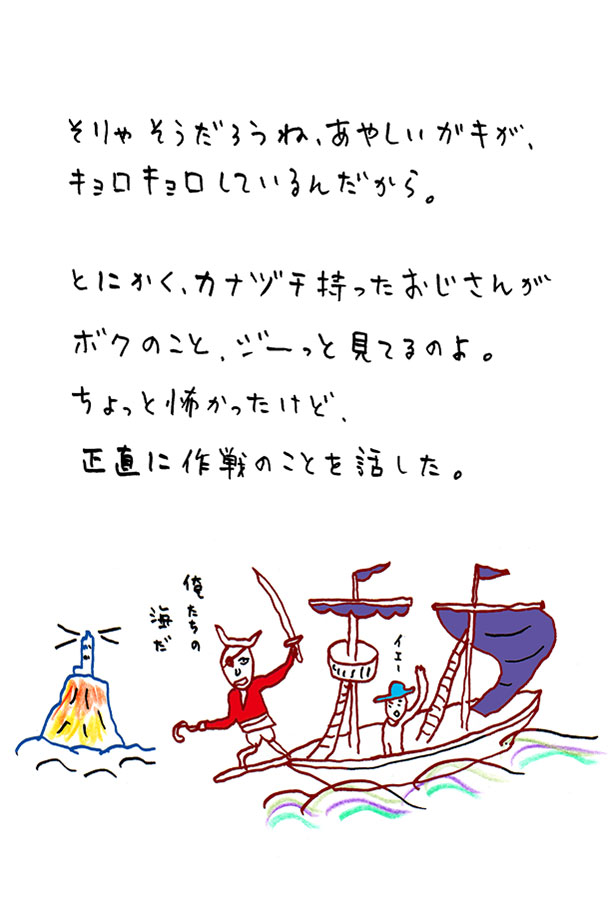 そりゃそうだろうね、あやしいガキが、
キョロキョロしているんだから。
とにかく、カナヅチ持ったおじさんが
ボクのこと、ジーっと見てるのよ。
ちょっと怖かったけど、
正直に作戦のことを話した。
俺たちの
海だ
イエー